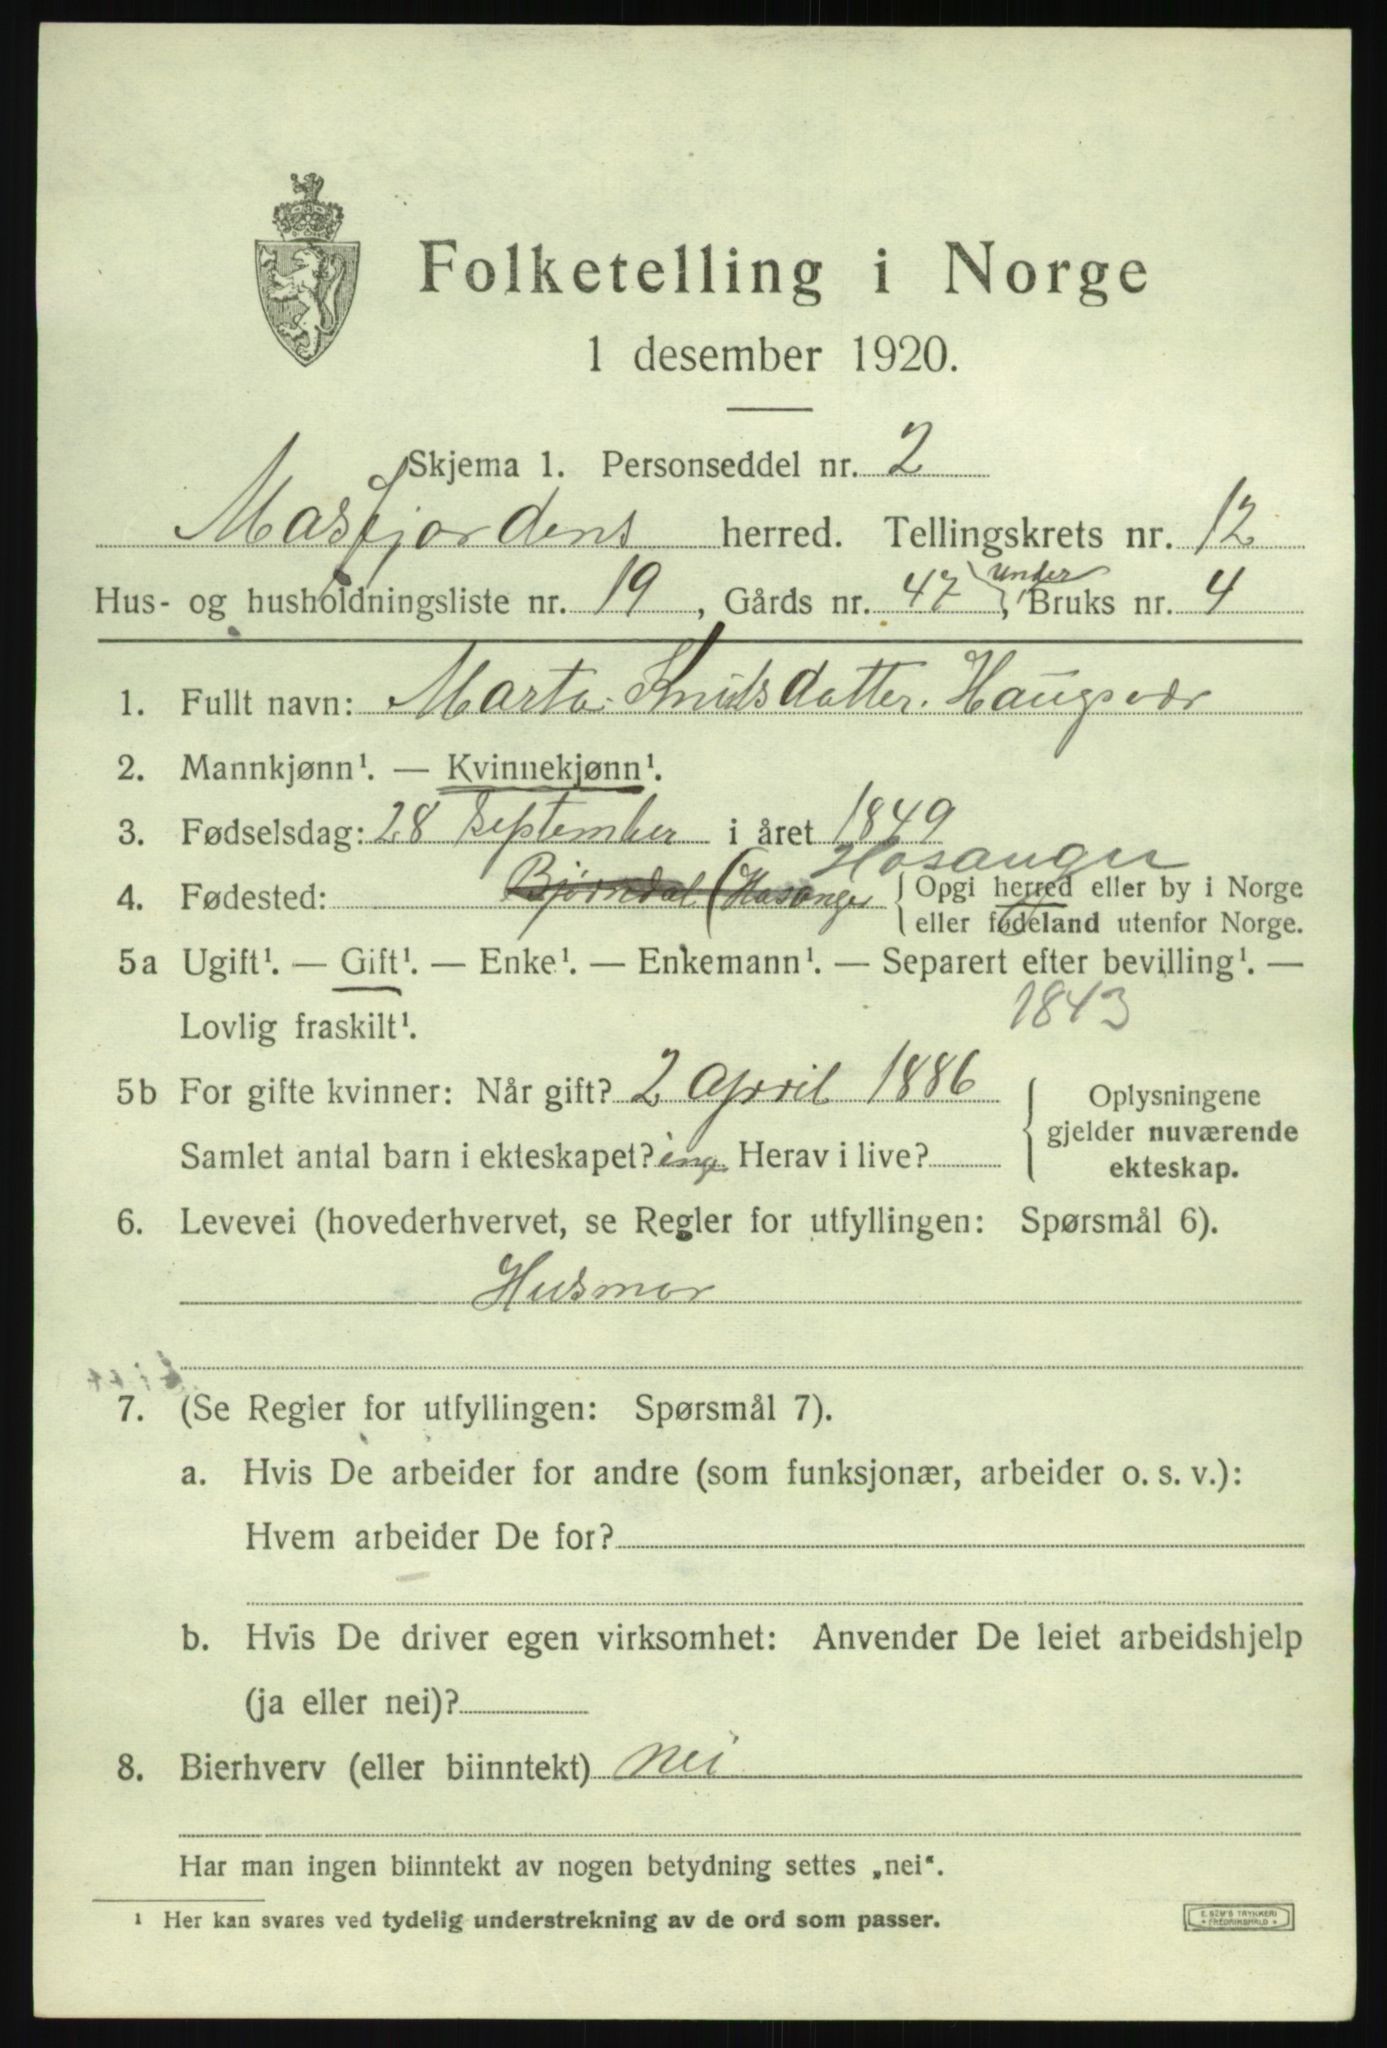 Folketelling i Norge
1 desember 1920.
Skjema 1. Personseddel nr. 2
Masfjordens herred. Tellingskrets nr. 12
Hus- og husholdningsliste nr. 19, Gårds nr. 47, under Bruks nr. 4
1. Fullt navn: Marta Knutsdatter. Haugsvær
2. Mannkjønn¹. — Kvinnekjønn¹.
3. Fødselsdag: 28 September i året 1849
Hosanger
4. Fødested: Bjørndal (Hosanger { Opgi herred eller by i Norge
eller fødeland utenfor Norge.
5a Ugift¹. — Gift¹. — Enke¹. — Enkemann¹. — Separert efter bevilling¹. —
Lovlig fraskilt¹. 1843
5b For gifte kvinner: Når gift? 2 april 1886 { Oplysningene
gjelder nuværende
Samlet antal barn i ekteskapet? ing. Herav i live?
ekteskap.
6. Levevei (hovederhvervet, se Regler for utfyllingen: Spørsmål 6).
Husmor
7. (Se Regler for utfyllingen: Spørsmål 7).
a. Hvis De arbeider for andre (som funksjonær, arbeider o. s. v.):
Hvem arbeider De for?
b. Hvis De driver egen virksomhet: Anvender De leiet arbeidshjelp
(ja eller nei)?
8. Bierhverv (eller biinntekt) nei
Har man ingen biinntekt av nogen betydning settes „nei“.
¹ Her kan svares ved tydelig understrekning av de ord som passer.
E. SEM'S TRYKKERI
FREDRIKSHALD